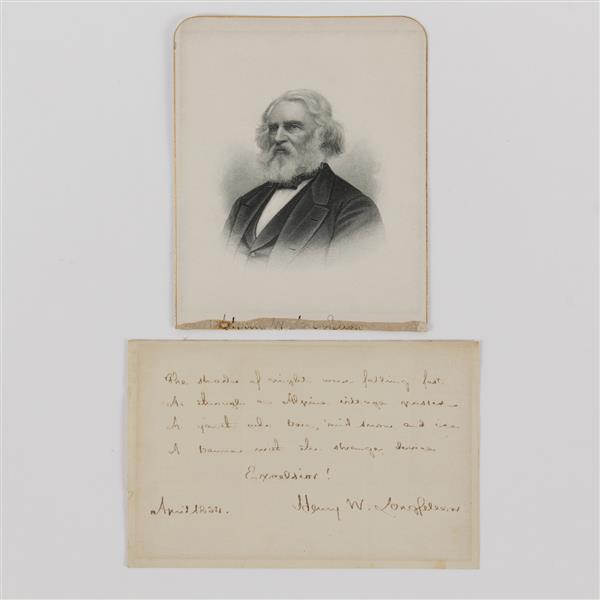 The shades of night were falling fast
As through an Alpine village passed
A youth who bore, 'mid snow and ice
A banner with the strange device
Excelsior!
April
Henry W. Longfellow